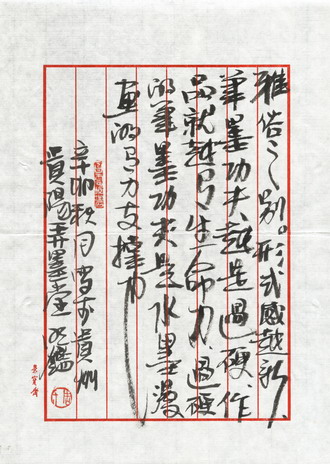 雅俗之别。形式感越新、
笔墨功夫越是過硬、作
品就越有生命力、過硬
的笔墨功夫是水墨漫
画的有力支撑力
辛卯秋月写于貴州
貴陽弄墨堂